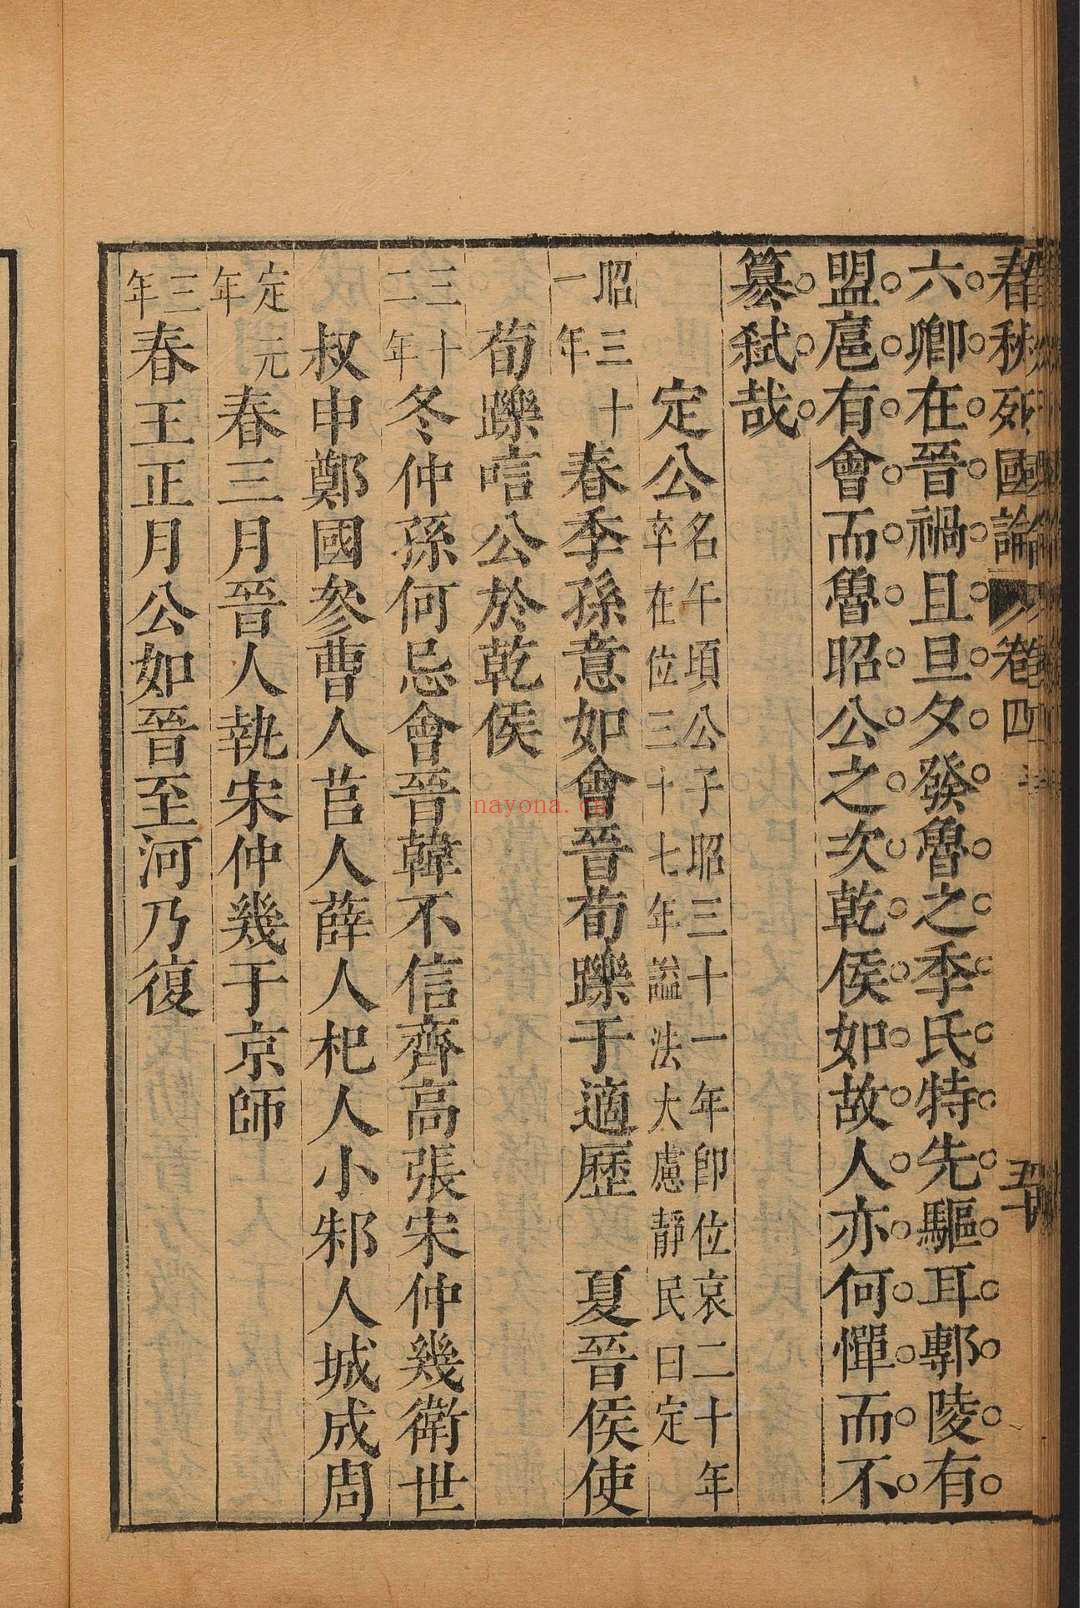 春秋列國論 卷四 五十
六卿在晉禍且旦夕發魯之季氏特先驅耳鄟陵有
盟扈有會而魯昭公之次乾侯如故人亦何憚而不
簒弒哉
定公名午頃公子昭三十一年即位哀二十年
卒在位三十七年謚法大慮靜民曰定
昭三十一年春季孫意如會晉荀躒于適歷 夏晉侯使
荀躒唁公於乾侯
三十二年冬仲孫何忌會晉韓不信齊高張宋仲幾衛世
叔申鄭國參曹人莒人薛人杞人小邾人城成周
定元年春三月晉人執宋仲幾于京師
三年春王正月公如晉至河乃復
nayona.cn